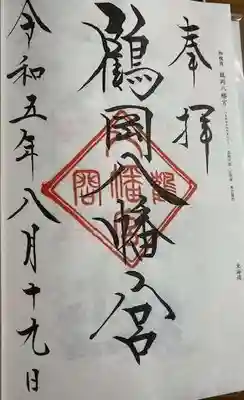 奉拝
鶴岡八幡宮
令和五年八月十九日
鶴岡八幡宮